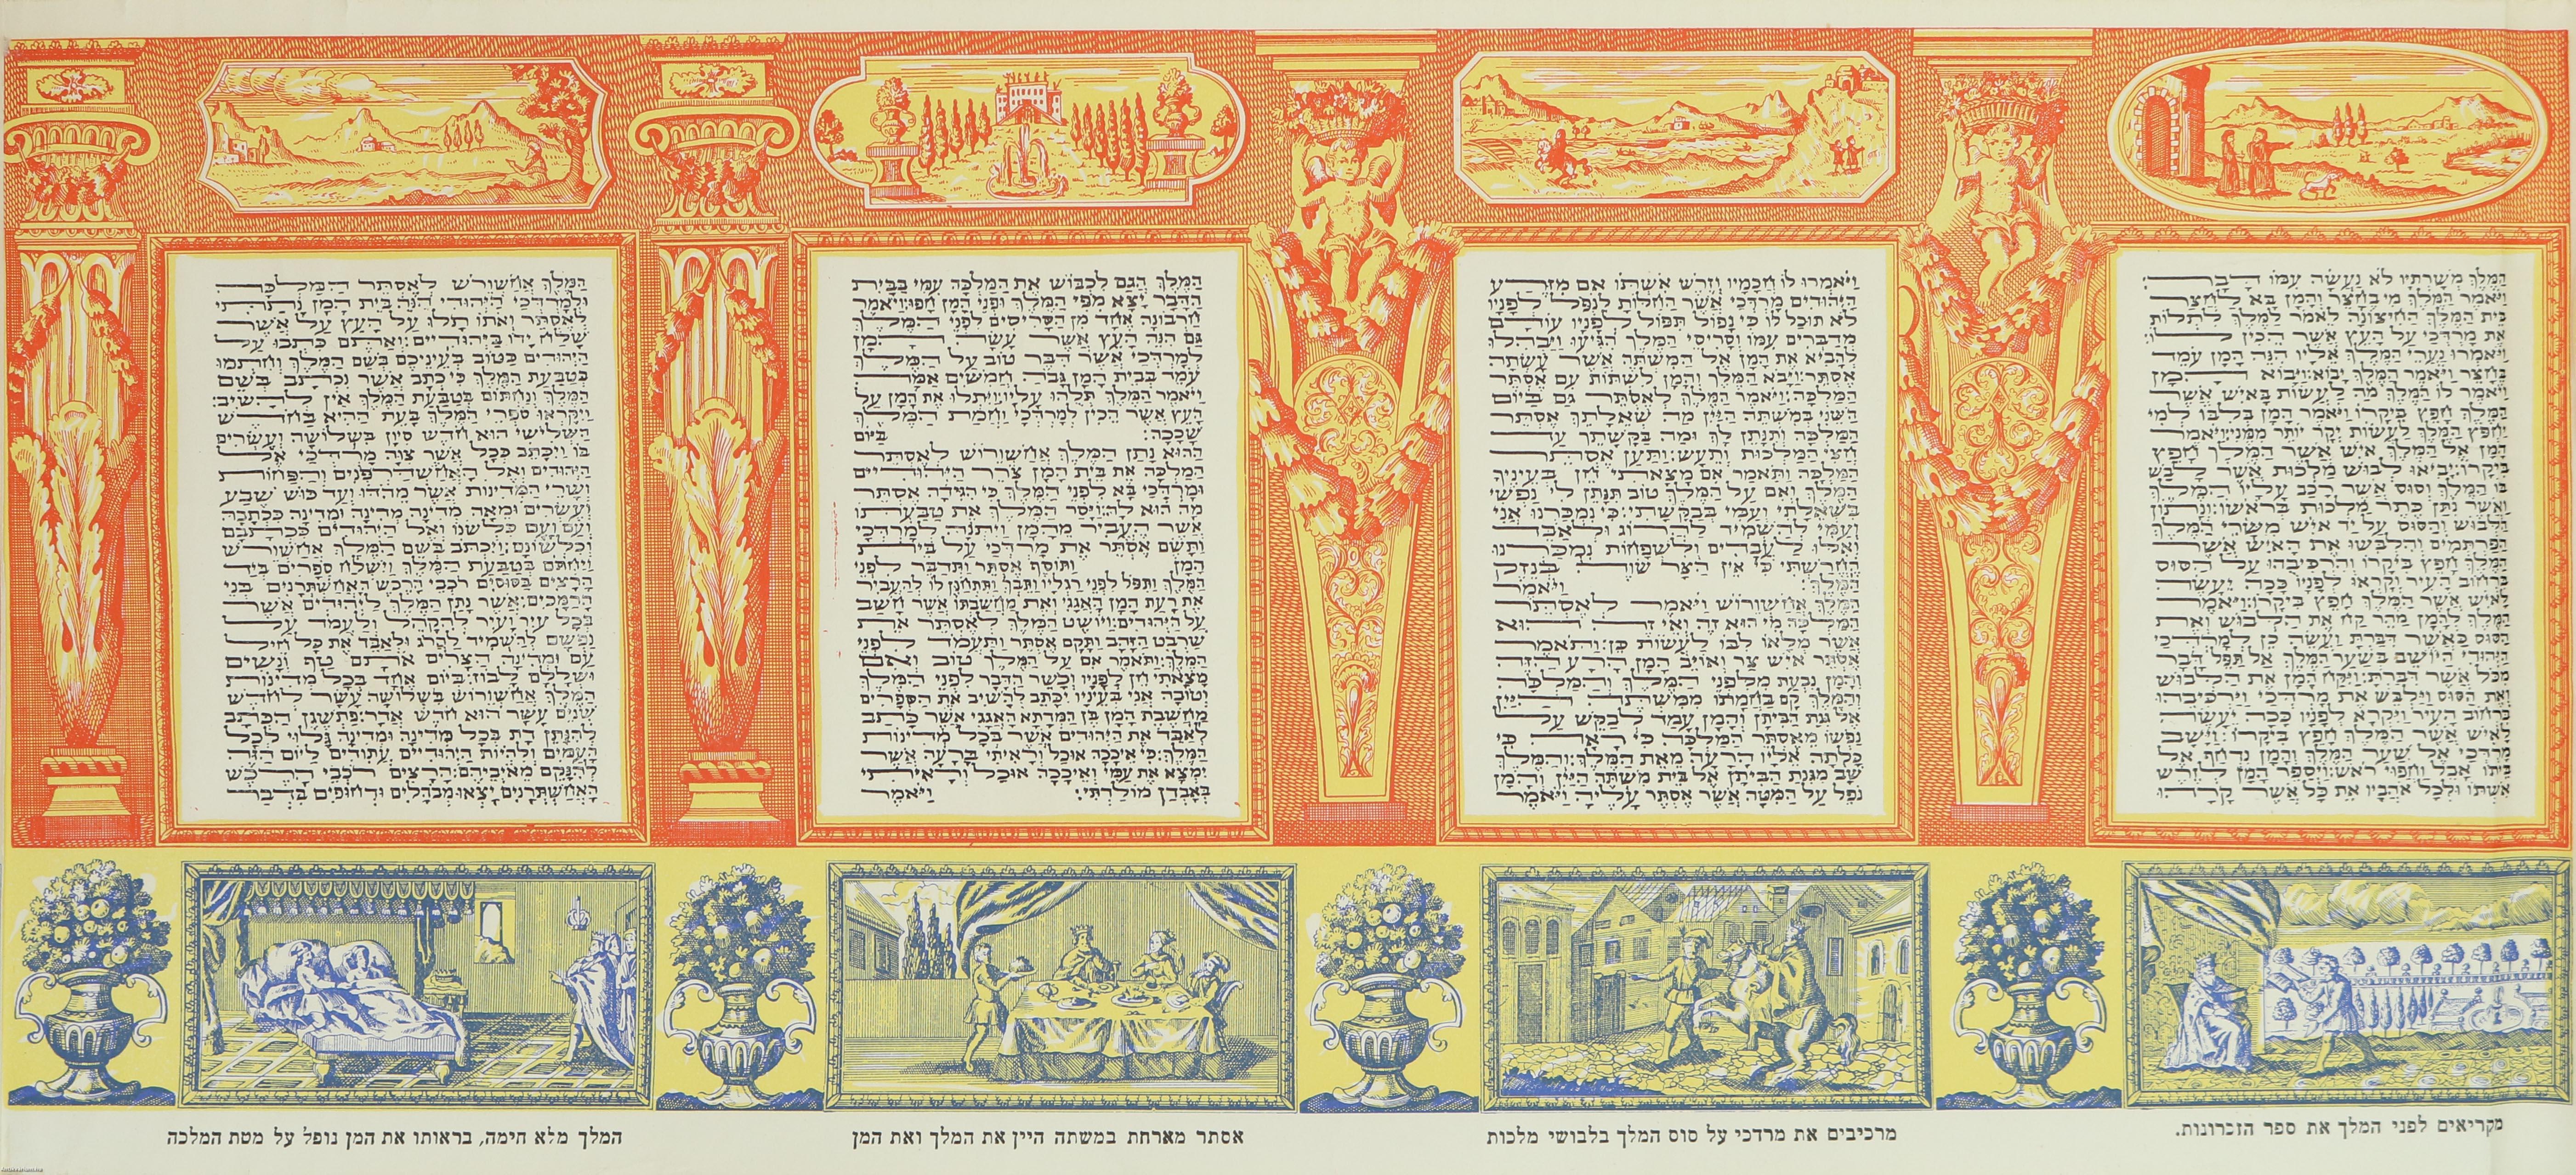 המלך משרתיו לא נעשה עמו דבר:
ויאמר המלך מי בחצר והמן בא לחצר
בית המלך החיצונה לאמר למלך לתלות
את מרדכי על העץ אשר הכין לו:
ויאמרו נערי המלך אליו הנה המן עמד
בחצר ויאמר המלך יבוא: ויבוא המן
ויאמר לו המלך מה לעשות באיש אשר
המלך חפץ ביקרו ויאמר המן בלבו למי
יחפץ המלך לעשות יקר יותר ממני: ויאמר
המן אל המלך איש אשר המלך חפץ
ביקרו: יביאו לבוש מלכות אשר לבש
בו המלך וסוס אשר רכב עליו המלך
ואשר נתן כתר מלכות בראשו: ונתון
הלבוש והסוס על יד איש משרי המלך
הפרתמים והלבשו את האיש אשר
המלך חפץ ביקרו והרכיבהו על הסוס
ברחוב העיר וקראו לפניו ככה יעשה
לאיש אשר המלך חפץ ביקרו: ויאמר
המלך להמן מהר קח את הלבוש ואת
הסוס כאשר דברת ועשה כן למרדכי
היהודי היושב בשער המלך אל תפל דבר
מכל אשר דברת: ויקח המן את הלבוש
ואת הסוס וילבש את מרדכי וירכיבהו
ברחוב העיר ויקרא לפניו ככה יעשה
לאיש אשר המלך חפץ ביקרו: וישב
מרדכי אל שער המלך והמן נדחף אל
ביתו אבל וחפוי ראש: ויספר המן לזרש
אשתו ולכל אהביו את כל אשר קרהו
ויאמרו לו חכמיו וזרש אשתו אם מזרע
היהודים מרדכי אשר החלות לנפל לפניו
לא תוכל לו כי נפול תפול לפניו עודם
מדברים עמו וסריסי המלך הגיעו ויבהלו
להביא את המן אל המשתה אשר עשתה
אסתר: ויבא המלך והמן לשתות עם אסתר
המלכה: ויאמר המלך לאסתר גם ביום
השני במשתה היין מה שאלתך אסתר
המלכה ותנתן לך ומה בקשתך עד
חצי המלכות ותעש: ותען אסתר
המלכה ותאמר אם מצאתי חן בעיניך
המלך ואם על המלך טוב תנתן לי נפשי
בשאלתי ועמי בבקשתי: כי נמכרנו אני
ועמי להשמיד להרוג ולאבד
ואלו לעבדים ולשפחות נמכרנו
החרשתי כי אין הצר שוה בנזק
המלך: ויאמר
המלך אחשורוש ויאמר לאסתר
המלכה מי הוא זה ואי זה הוא
אשר מלאו לבו לעשות כן: ותאמר
אסתר איש צר ואויב המן הרע הזה
והמן נבעת מלפני המלך והמלכה:
והמלך קם בחמתו ממשתה היין
אל גנת הביתן והמן עמד לבקש על
נפשו מאסתר המלכה כי ראה כי
כלתה אליו הרעה מאת המלך: והמלך
שב מגנת הביתן אל בית משתה היין והמן
נפל על המטה אשר אסתר עליה ויאמר
המלך הגם לכבוש את המלכה עמי בבית
הדבר יצא מפי המלך ופני המן חפו: ויאמר
חרבונה אחד מן הסריסים לפני המלך
גם הנה העץ אשר עשה המן
למרדכי אשר דבר טוב על המלך
עמד בבית המן גבה חמשים אמה
ויאמר המלך תלהו עליו: ויתלו את המן על
העץ אשר הכין למרדכי וחמת המלך
שככה: ביום
ההוא נתן המלך אחשורוש לאסתר
המלכה את בית המן צרר היהודיים
ומרדכי בא לפני המלך כי הגידה אסתר
מה הוא לה: ויסר המלך את טבעתו
אשר העביר מהמן ויתנה למרדכי
ותשם אסתר את מרדכי על בית
המן ותוסף אסתר ותדבר לפני
המלך ותפל לפני רגליו ותבך ותתחנן לו להעביר
את רעת המן האגגי ואת מחשבתו אשר חשב
על היהודים: ויושט המלך לאסתר את
שרבט הזהב ותקם אסתר ותעמד לפני
המלך: ותאמר אם על המלך טוב ואם
מצאתי חן לפניו וכשר הדבר לפני המלך
וטובה אני בעיניו יכתב להשיב את הספרים
מחשבת המן בן המדתא האגגי אשר כתב
לאבד את היהודים אשר בכל מדינות
המלך: כי איככה אוכל וראיתי ברעה אשר
ימצא את עמי ואיככה אוכל וראיתי
באבדן מולדתי: ויאמר
המלך אחשורוש לאסתר המלכה
ולמרדכי היהודי הנה בית המן נתתי
לאסתר ואתו תלו על העץ על אשר
שלח ידו ביהודיים: ואתם כתבו על
היהודים כטוב בעיניכם בשם המלך וחתמו
בטבעת המלך כי כתב אשר נכתב בשם
המלך ונחתום בטבעת המלך אין להשיב:
ויקראו ספרי המלך בעת ההיא בחדש
השלישי הוא חדש סיון בשלושה ועשרים
בו ויכתב ככל אשר צוה מרדכי אל
היהודים ואל האחשדרפנים והפחות
ושרי המדינות אשר מהדו ועד כוש שבע
ועשרים ומאה מדינה מדינה ומדינה ככתבה
ועם ועם כלשנו ואל היהודים ככתבם
וכלשונם: ויכתב בשם המלך אחשורש
ויחתם בטבעת המלך וישלח ספרים ביד
הרצים בסוסים רכבי הרכש האחשתרנים בני
הרמכים: אשר נתן המלך ליהודים אשר
בכל עיר ועיר להקהל ולעמד על
נפשם להשמיד להרג ולאבד את כל חיל
עם ומדינה הצרים אתם טף ונשים
ושללם לבוז: ביום אחד בכל מדינות
המלך אחשורוש בשלושה עשר לחדש
שנים עשר הוא חדש אדר: פתשגן הכתב
להנתן דת בכל מדינה ומדינה גלוי לכל
העמים ולהיות היהודיים עתודים ליום הזה
להנקם מאיביהם: הרצים רכבי הרכש
האחשתרנים יצאו מבהלים ודחופים בדבר
מקריאים לפני המלך את ספר הזכרונות.
מרכיבים את מרדכי על סוס המלך בלבושי מלכות
אסתר מארחת במשתה היין את המלך ואת המן
המלך מלא חימה, בראותו את המן נופל על מטת המלכה